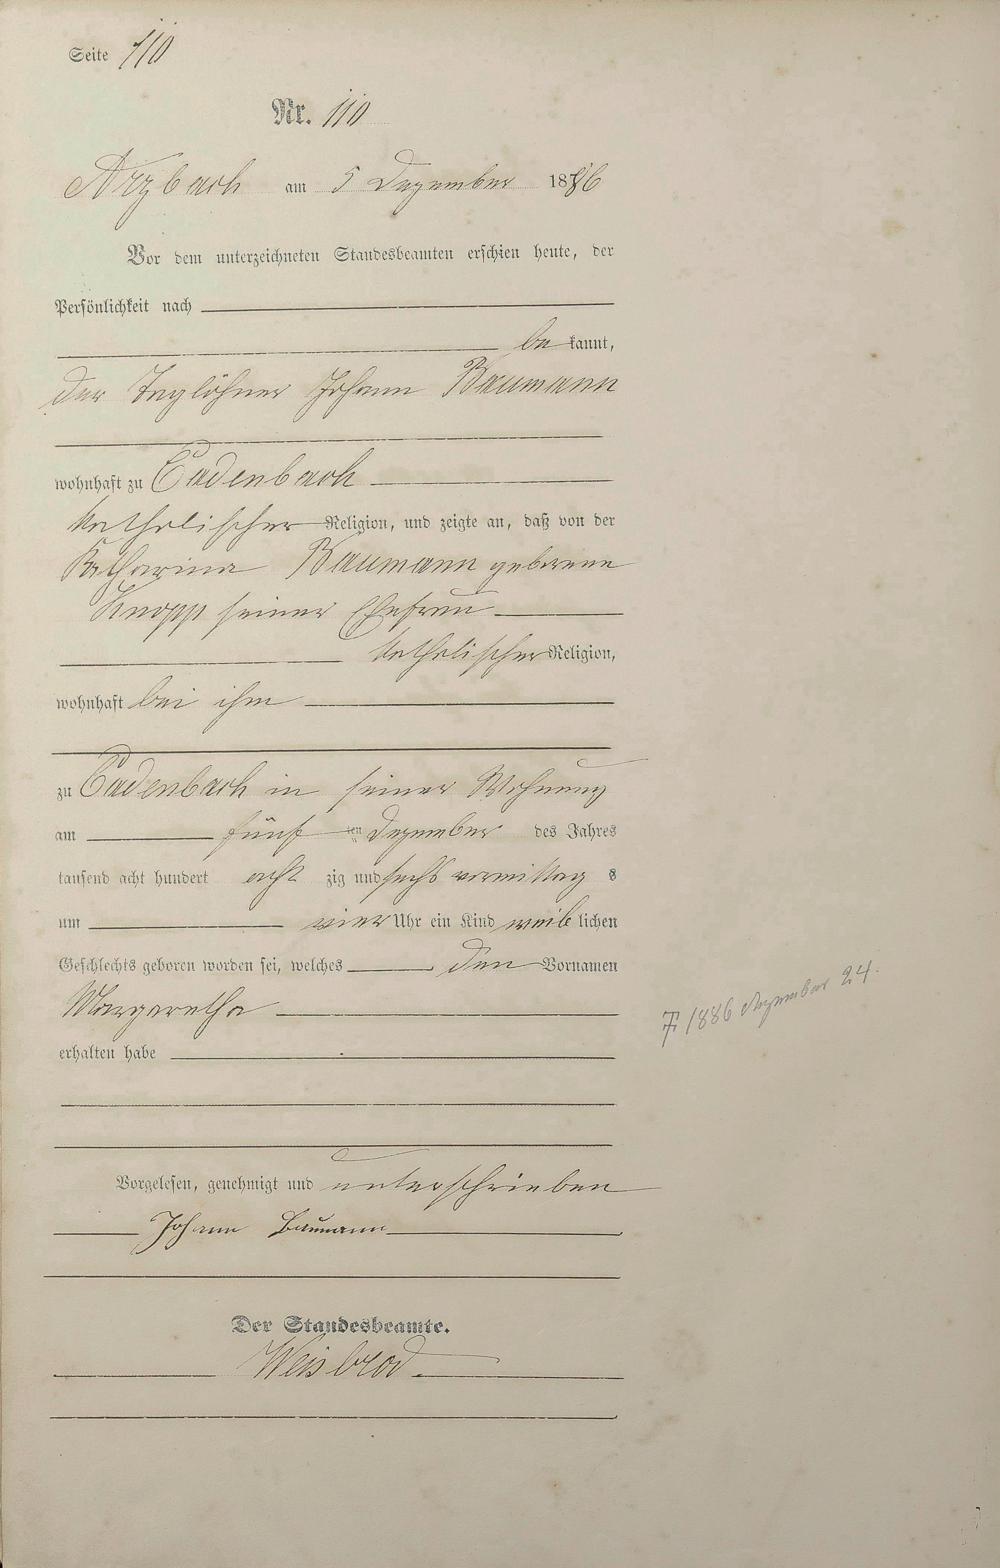 Seite 110
Nr. 110
Arzbach am 5 Dezember 1886
Vor dem unterzeichneten Standesbeamten erschien heute, der
Persönlichkeit nach
be kannt,
der Taglöhner Johann Baumann
wohnhaft zu Cadenbach
katholischer Religion, und zeigte an, daß von der
Katharina Baumann geborene
Knopp seiner Ehefrau
katholischer Religion,
wohnhaft bei ihm
zu Cadenbach in seiner Wohnung
am fünf ten Dezember des Jahres
tausend acht hundert acht zig und sechs vormittag s
um vier Uhr ein Kind weib lichen
Geschlechts geboren worden sei, welches den Vornamen
Margaretha
† 1886 Dezember 24.
erhalten habe
Vorgelesen, genehmigt und unterschrieben
Johann Baumann
Der Standesbeamte.
Weisbrod